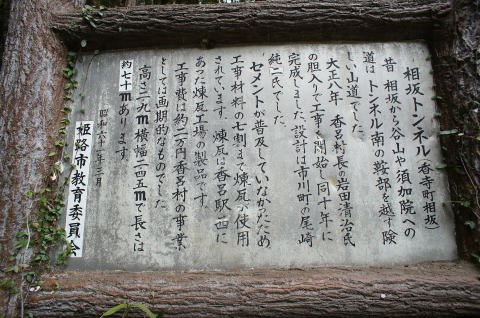 相坂トンネル(香寺町相坂)
昔 相坂から谷山や須加院への
道は トンネル南の鞍部を越す険
しい山道でした。
大正八年 香呂村長の岩田清治氏
の胆入りで工事を開始し同十年に
完成しました。設計は市川町の尾崎
純二氏でした。
セメントが普及していなかったため
工事材料の七割まで煉瓦が使用
されています。煉瓦は香呂駅の西に
あった煉瓦工場の製品です。
工事費は約二万円香呂村の事業
としては画期的なものでした。
高さ二九m横幅二四五mで長さは
約七十mあります。
昭和六十二年三月
姫路市教育委員会